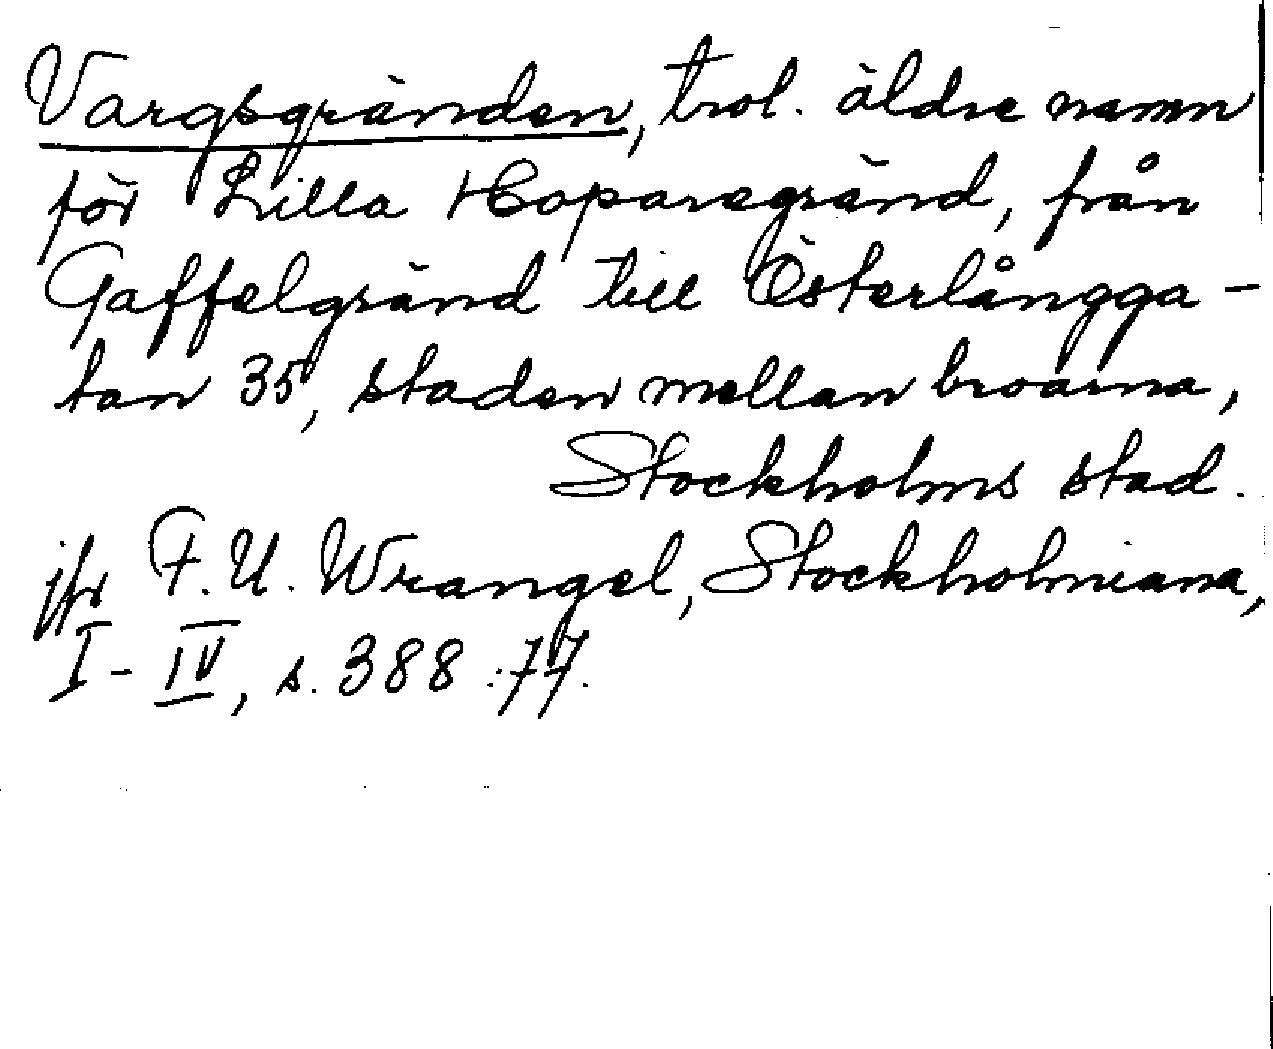 Vargsgränden, trol. äldre namn
för Lilla Hoparegränd, från
Gaffelgränd till Österlångga-
tan 35, staden mellan broarna,
Stockholms stad.
jfr F. U. Wrangel, Stockholmiana,
I - IV, s. 388 :77.